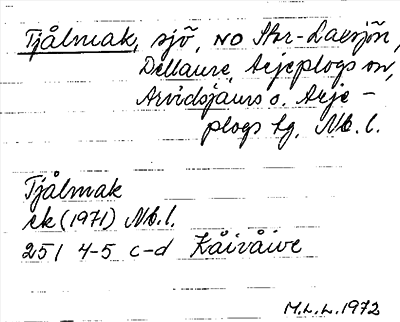 Tjålmak, sjö, NO Stor-Laisjön,
Dellaure, Arjeplogs sn,
Arvidsjaurs o. Arje-
plogs tg, Nb. l.
Tjålmak
ek (1971) Nb. l.
25I 4-5 c-d Kåivåive
M.L.L. 1972